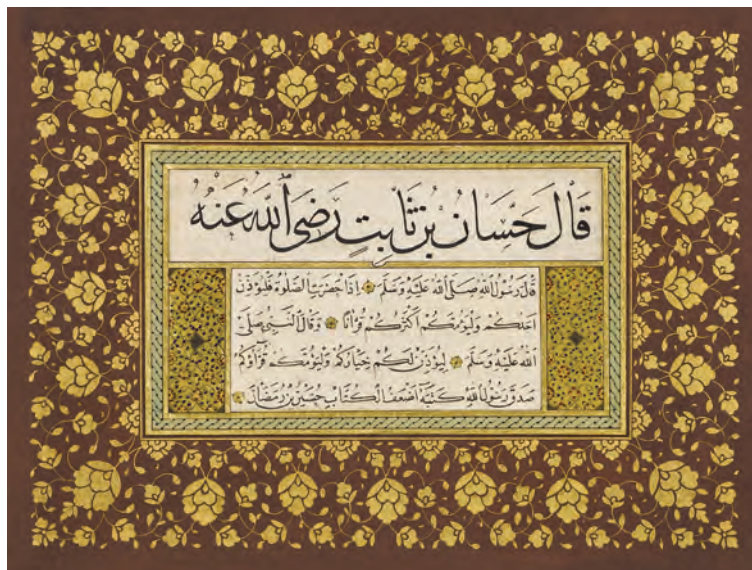 قَالَ حَسَان بن ثَابِتٍ رَضَى اللّٰه عَنْهُ
قَالَ رَسُولُ اللهِ صَلَّى اللهُ عَلَيْهِ وَسَلَّمَ اِذَا حَضَرَتِ الصَّلٰوةُ فَلْيُؤَذِّنْ
اَحَدُكُمْ وَلْيَؤُمَّكُمْ اَكْثَرُكُمْ قُرْاٰنًا وَقَالَ النَّبِىُّ صَلَّى
اللهُ عَلَيْهِ وَسَلَّمَ لِيُؤَذِّنْ لَكُمْ خِيَارُكُمْ وَلْيَؤُمَّكُمْ قُرَّاؤُكُمْ
صَدَقَ رَسُولُ اللهِ كَتَبَهُ اَضْعَفُ الْكُتَّابْ حُسَيْن بْن رَمَضَانْ